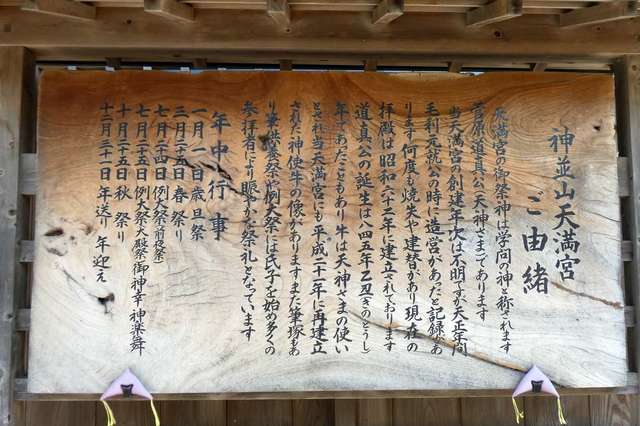 神並山天満宮
ご由緒
天満宮の御祭神は学問の神と称されます
菅原の道真公（天神さま）であります
当天満宮の創建年次は不明ですが天正年間
毛利元就公の時に造営があったと記録があ
ります 何度も焼失や建替があり現在の
拝殿は昭和六十二年に建立されております
道真公の誕生は八四五年乙丑（きのとうし）
年であったこともあり牛は天神さまの使い
とされ当天満宮にも平成二十一年に再建立
された神使牛の像があります また筆塚もあ
り筆供養祭や例大祭には氏子を始め多くの
参拝者により賑やかな祭礼となっています
年中行事
一月一日 歳旦祭
三月二十五日 春祭り
七月二十四日 例大祭（前夜祭）
七月二十五日 例大祭（大殿祭）御神幸 神楽舞
十月二十五日 秋祭り
十二月三十一日 年送り 年迎え